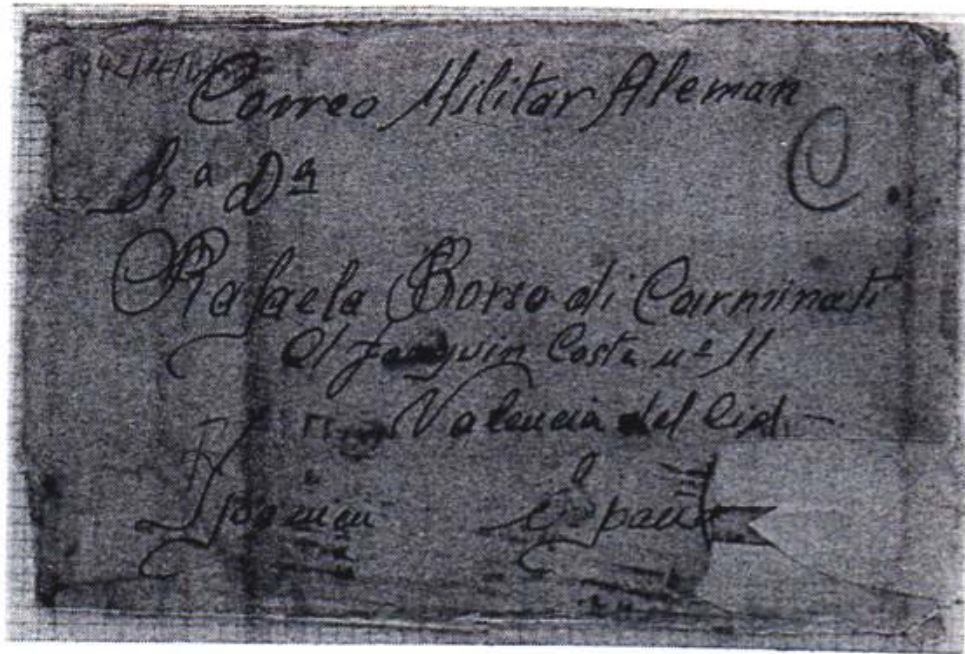 Correo Militar Aleman
C.
Sr.ª Dª
Rafaela Borso di Carminati
C/ Joaquin Costa nº 11
Valencia del Cid.—